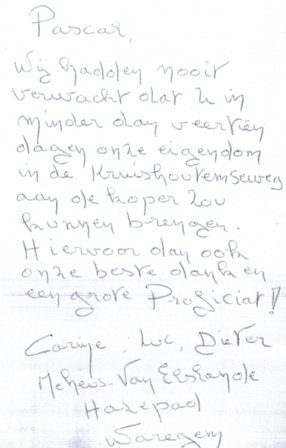 Pascal,
Wij hadden nooit
verwacht dat u in
minder dan veertien
dagen onze eigendom
in de Kruishoutemseweg
aan de koper zou
kunnen brengen.
Hiervoor dan ook
onze beste dank en
een grote Proficiat!
Carine, Luc, Dieter
Meheus-Van Elslande
Hazepad
Waregem